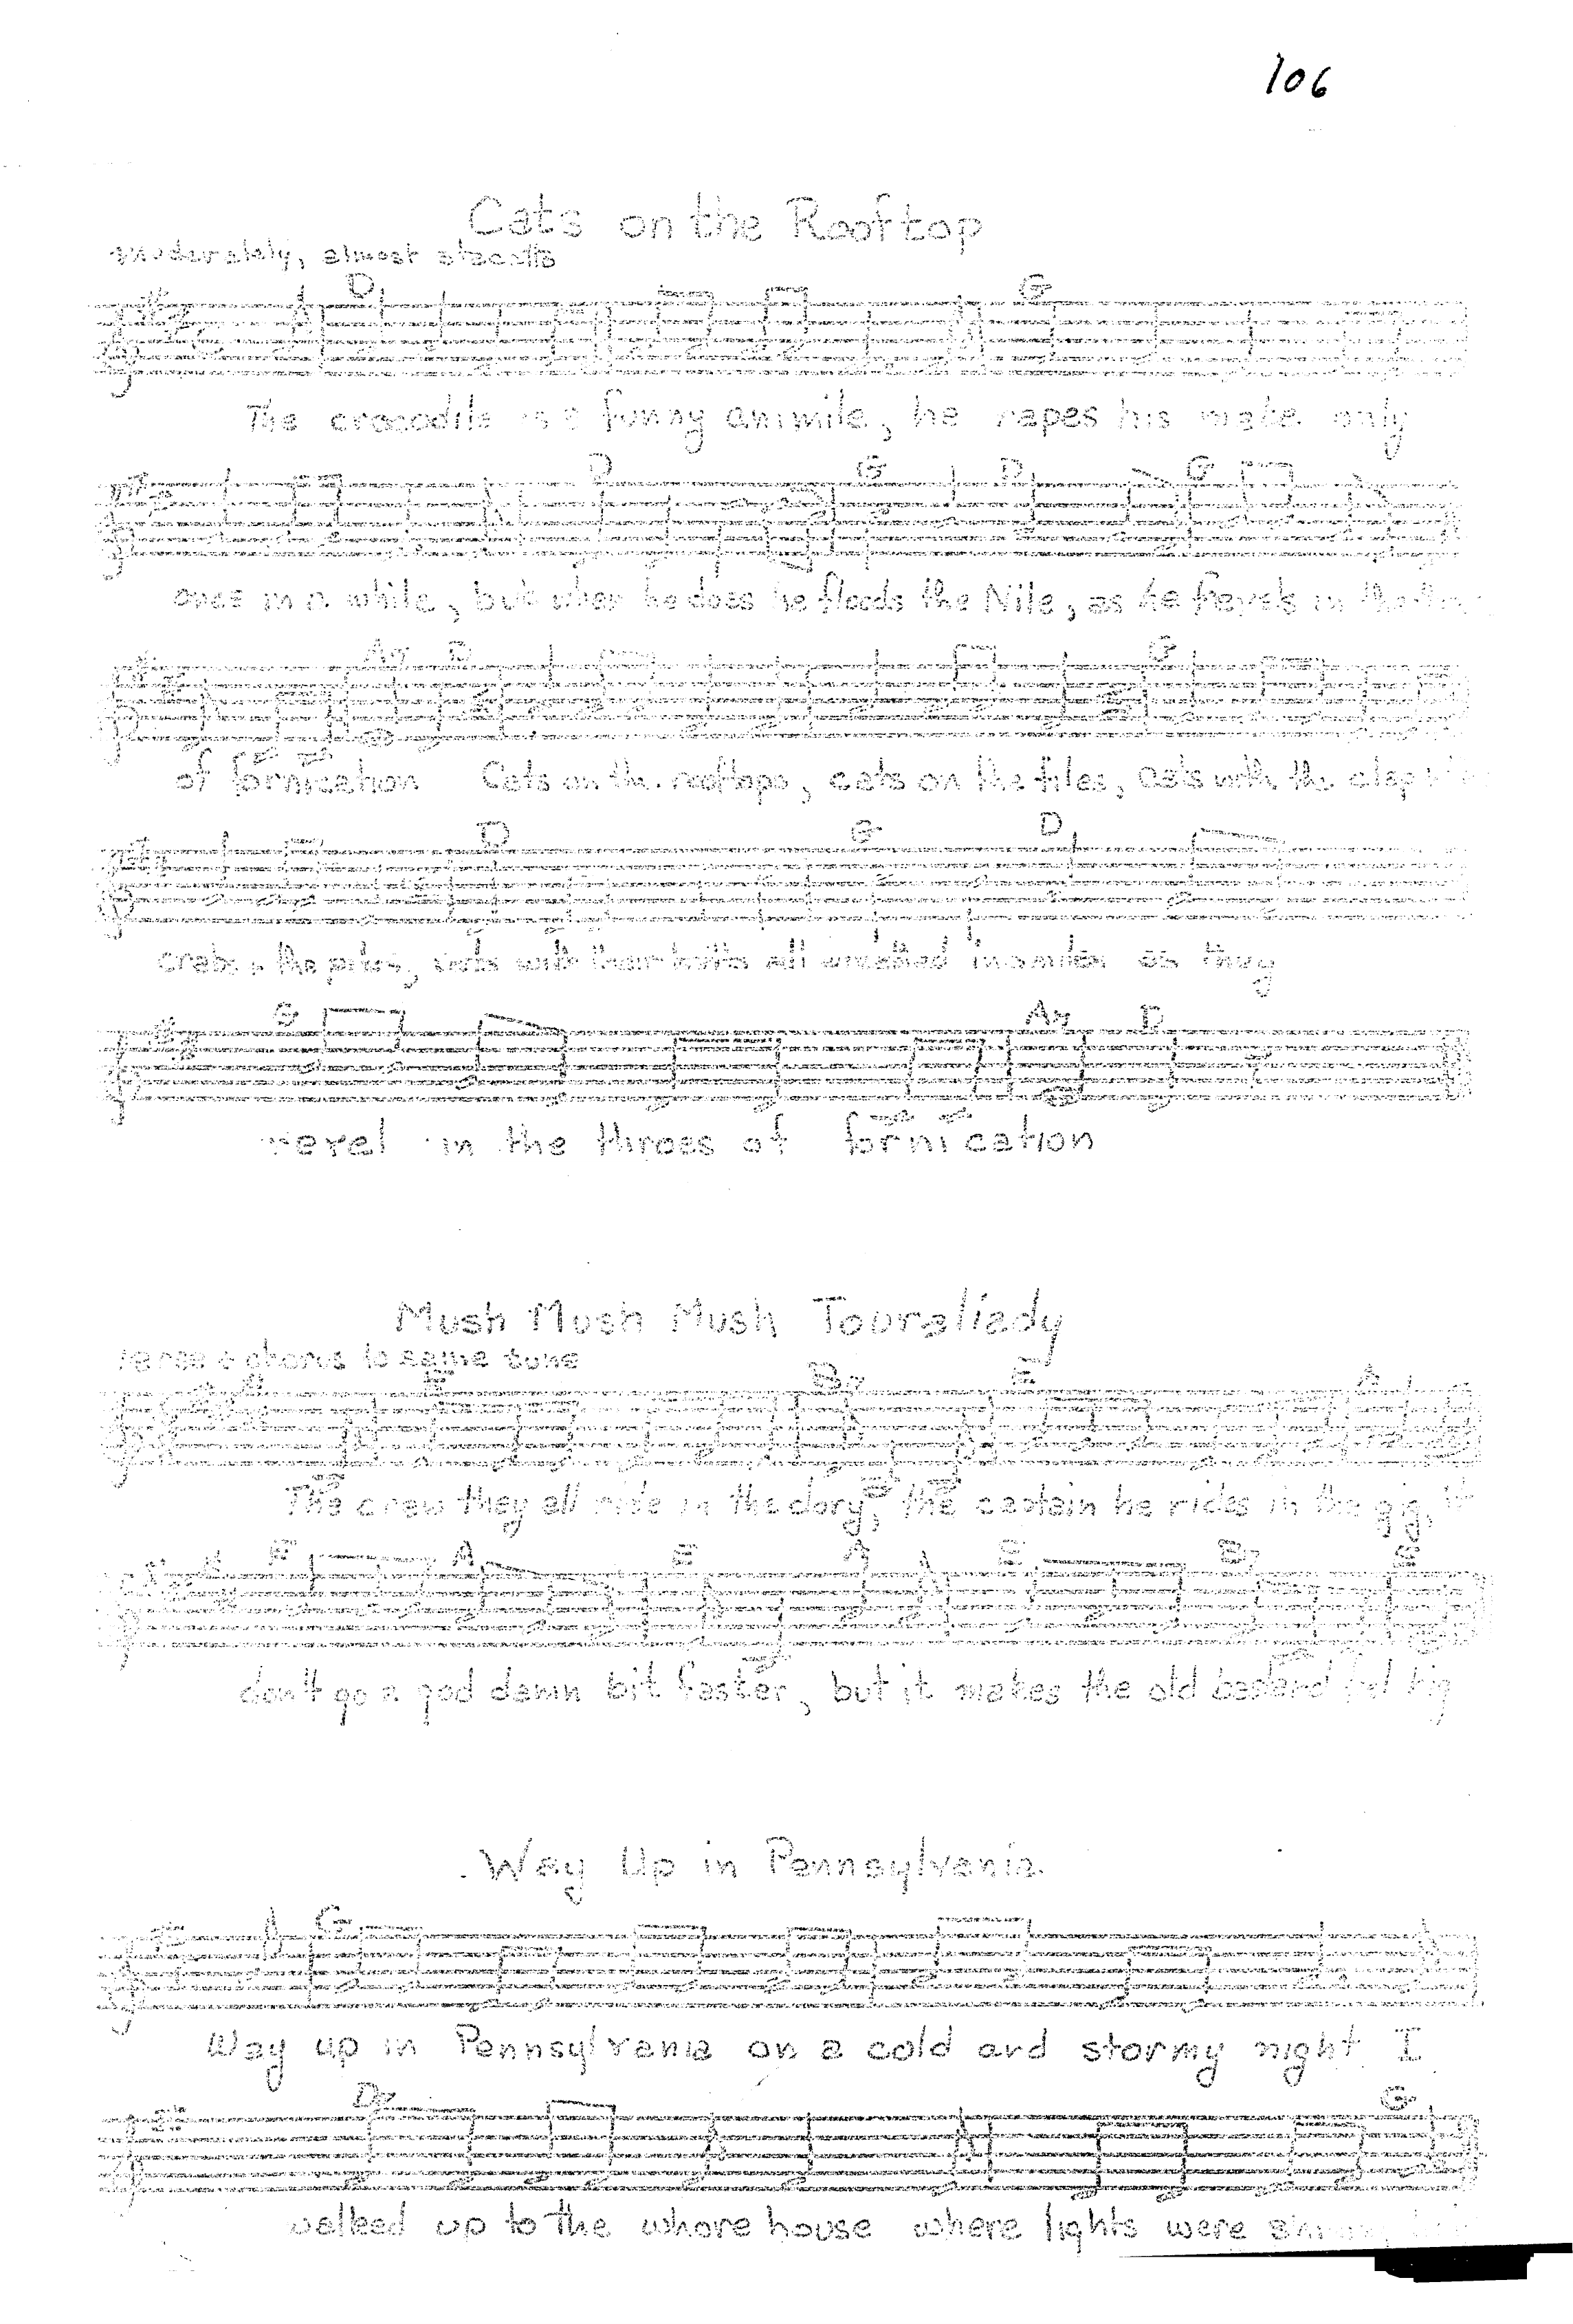 106
Cats on the Rooftop
moderately, almost staccatto
D G
The crocodile is a funny animile, he rapes his mate only
D G D G
once in a while, but when he does he floods the Nile, as he revels in the
A7 D G
of fornication Cats on the rooftops, cats on the tiles, cats with the clap
D G D
crabs & the piles, cats with their butts all wreathed in smiles as they
G A7 D
revel in the throes of fornication
Mush Mush Mush Touraliady
verse & chorus to same tune
E B7 E A
The crew they all ride in the dory, the captain he rides in the gig, it
E A E A E B7 E
don't go a god damn bit faster, but it makes the old bastard feel big
Way Up in Pennsylvania
G
Way up in Pennsylvania on a cold and stormy night I
D7 G
walked up to the whore house where lights were